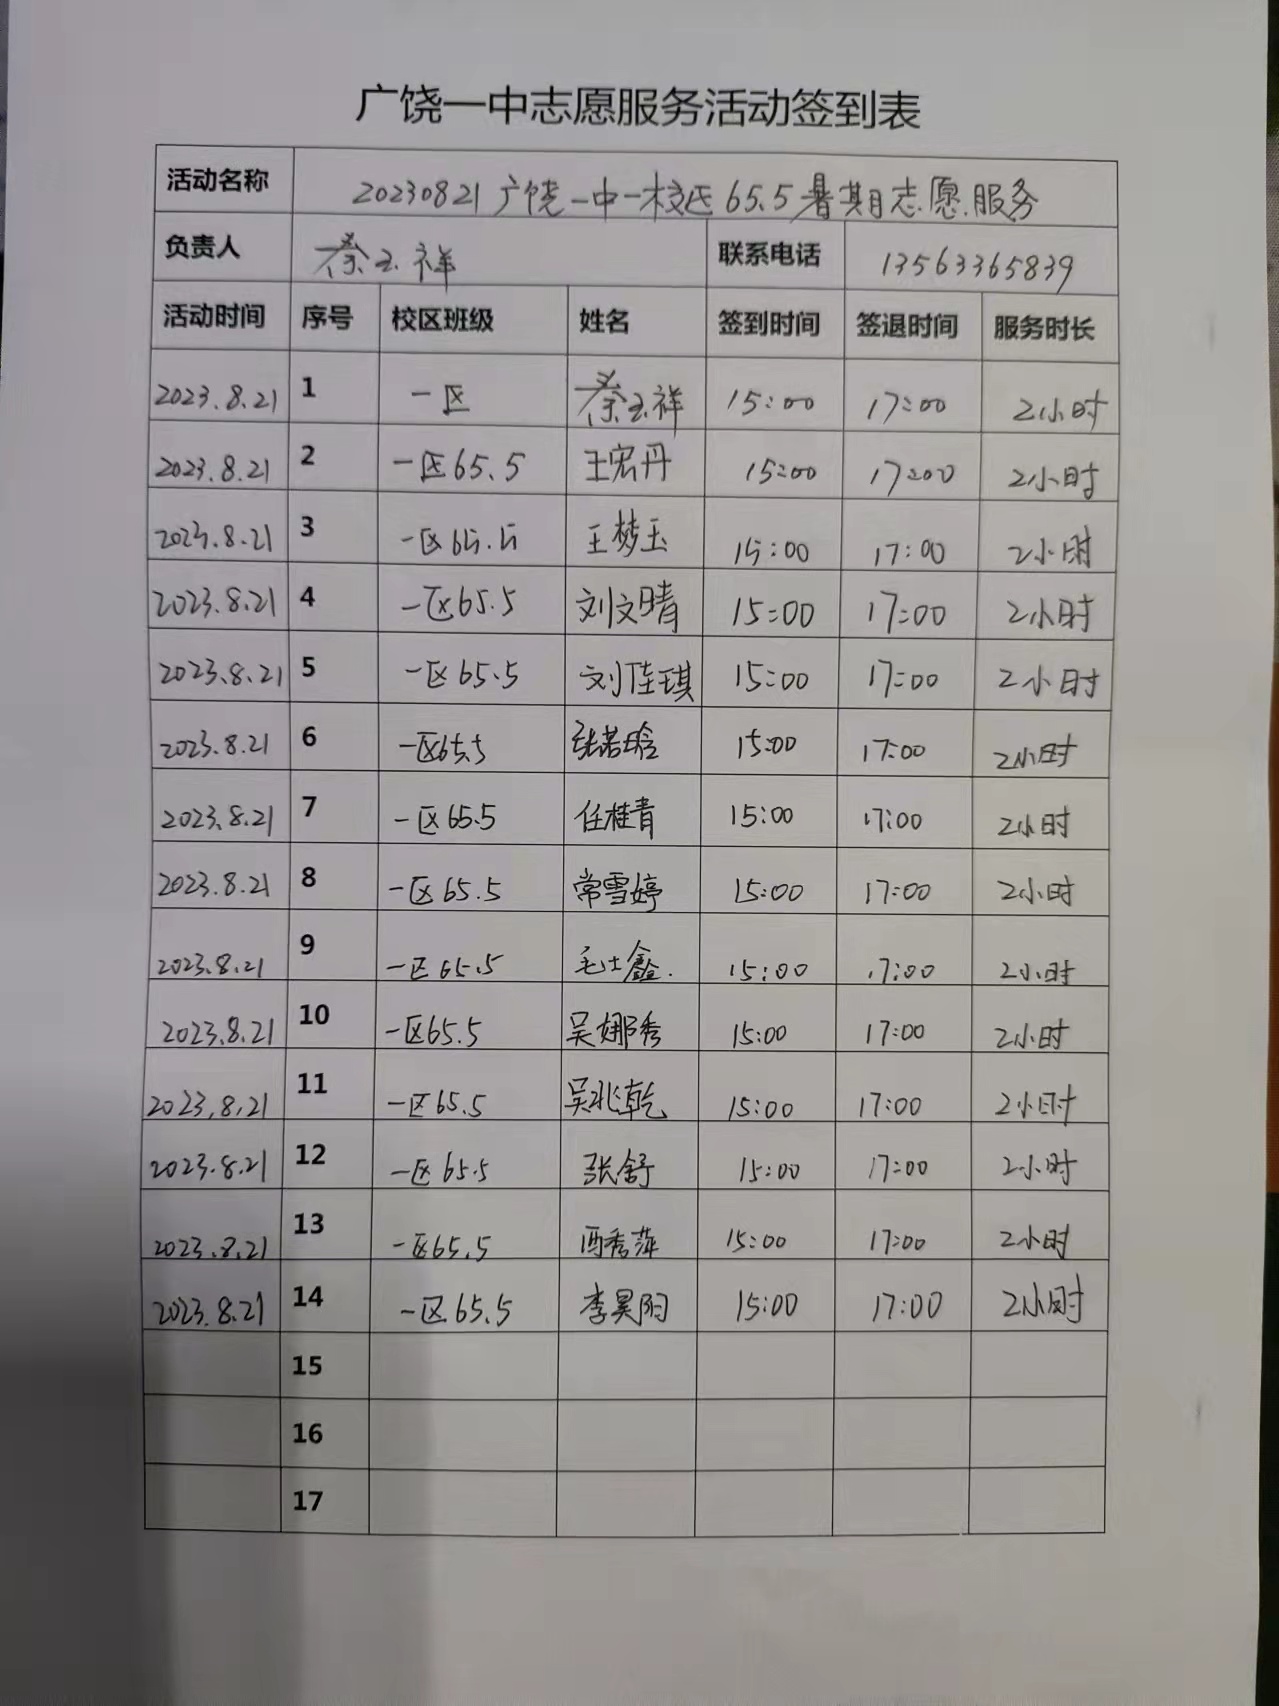 广饶一中志愿服务活动签到表
活动名称 20230821广饶一中一校区65.5暑期志愿服务
负责人 蔡玉祥 联系电话 13563365839
活动时间 序号 校区班级 姓名 签到时间 签退时间 服务时长
2023.8.21 1 一区 蔡玉祥 15:00 17:00 2小时
2023.8.21 2 一区65.5 王宏丹 15:00 17:00 2小时
2023.8.21 3 一区65.5 王梦玉 15:00 17:00 2小时
2023.8.21 4 一区65.5 刘文晴 15:00 17:00 2小时
2023.8.21 5 一区65.5 刘佳琪 15:00 17:00 2小时
2023.8.21 6 一区65.5 张若晗 15:00 17:00 2小时
2023.8.21 7 一区65.5 任桂青 15:00 17:00 2小时
2023.8.21 8 一区65.5 常雪婷 15:00 17:00 2小时
2023.8.21 9 一区65.5 毛士鑫 15:00 17:00 2小时
2023.8.21 10 一区65.5 吴娜秀 15:00 17:00 2小时
2023.8.21 11 一区65.5 吴兆乾 15:00 17:00 2小时
2023.8.21 12 一区65.5 张舒 15:00 17:00 2小时
2023.8.21 13 一区65.5 15:00 17:00 2小时
2023.8.21 14 一区65.5 李昊阳 15:00 17:00 2小时
15
16
17